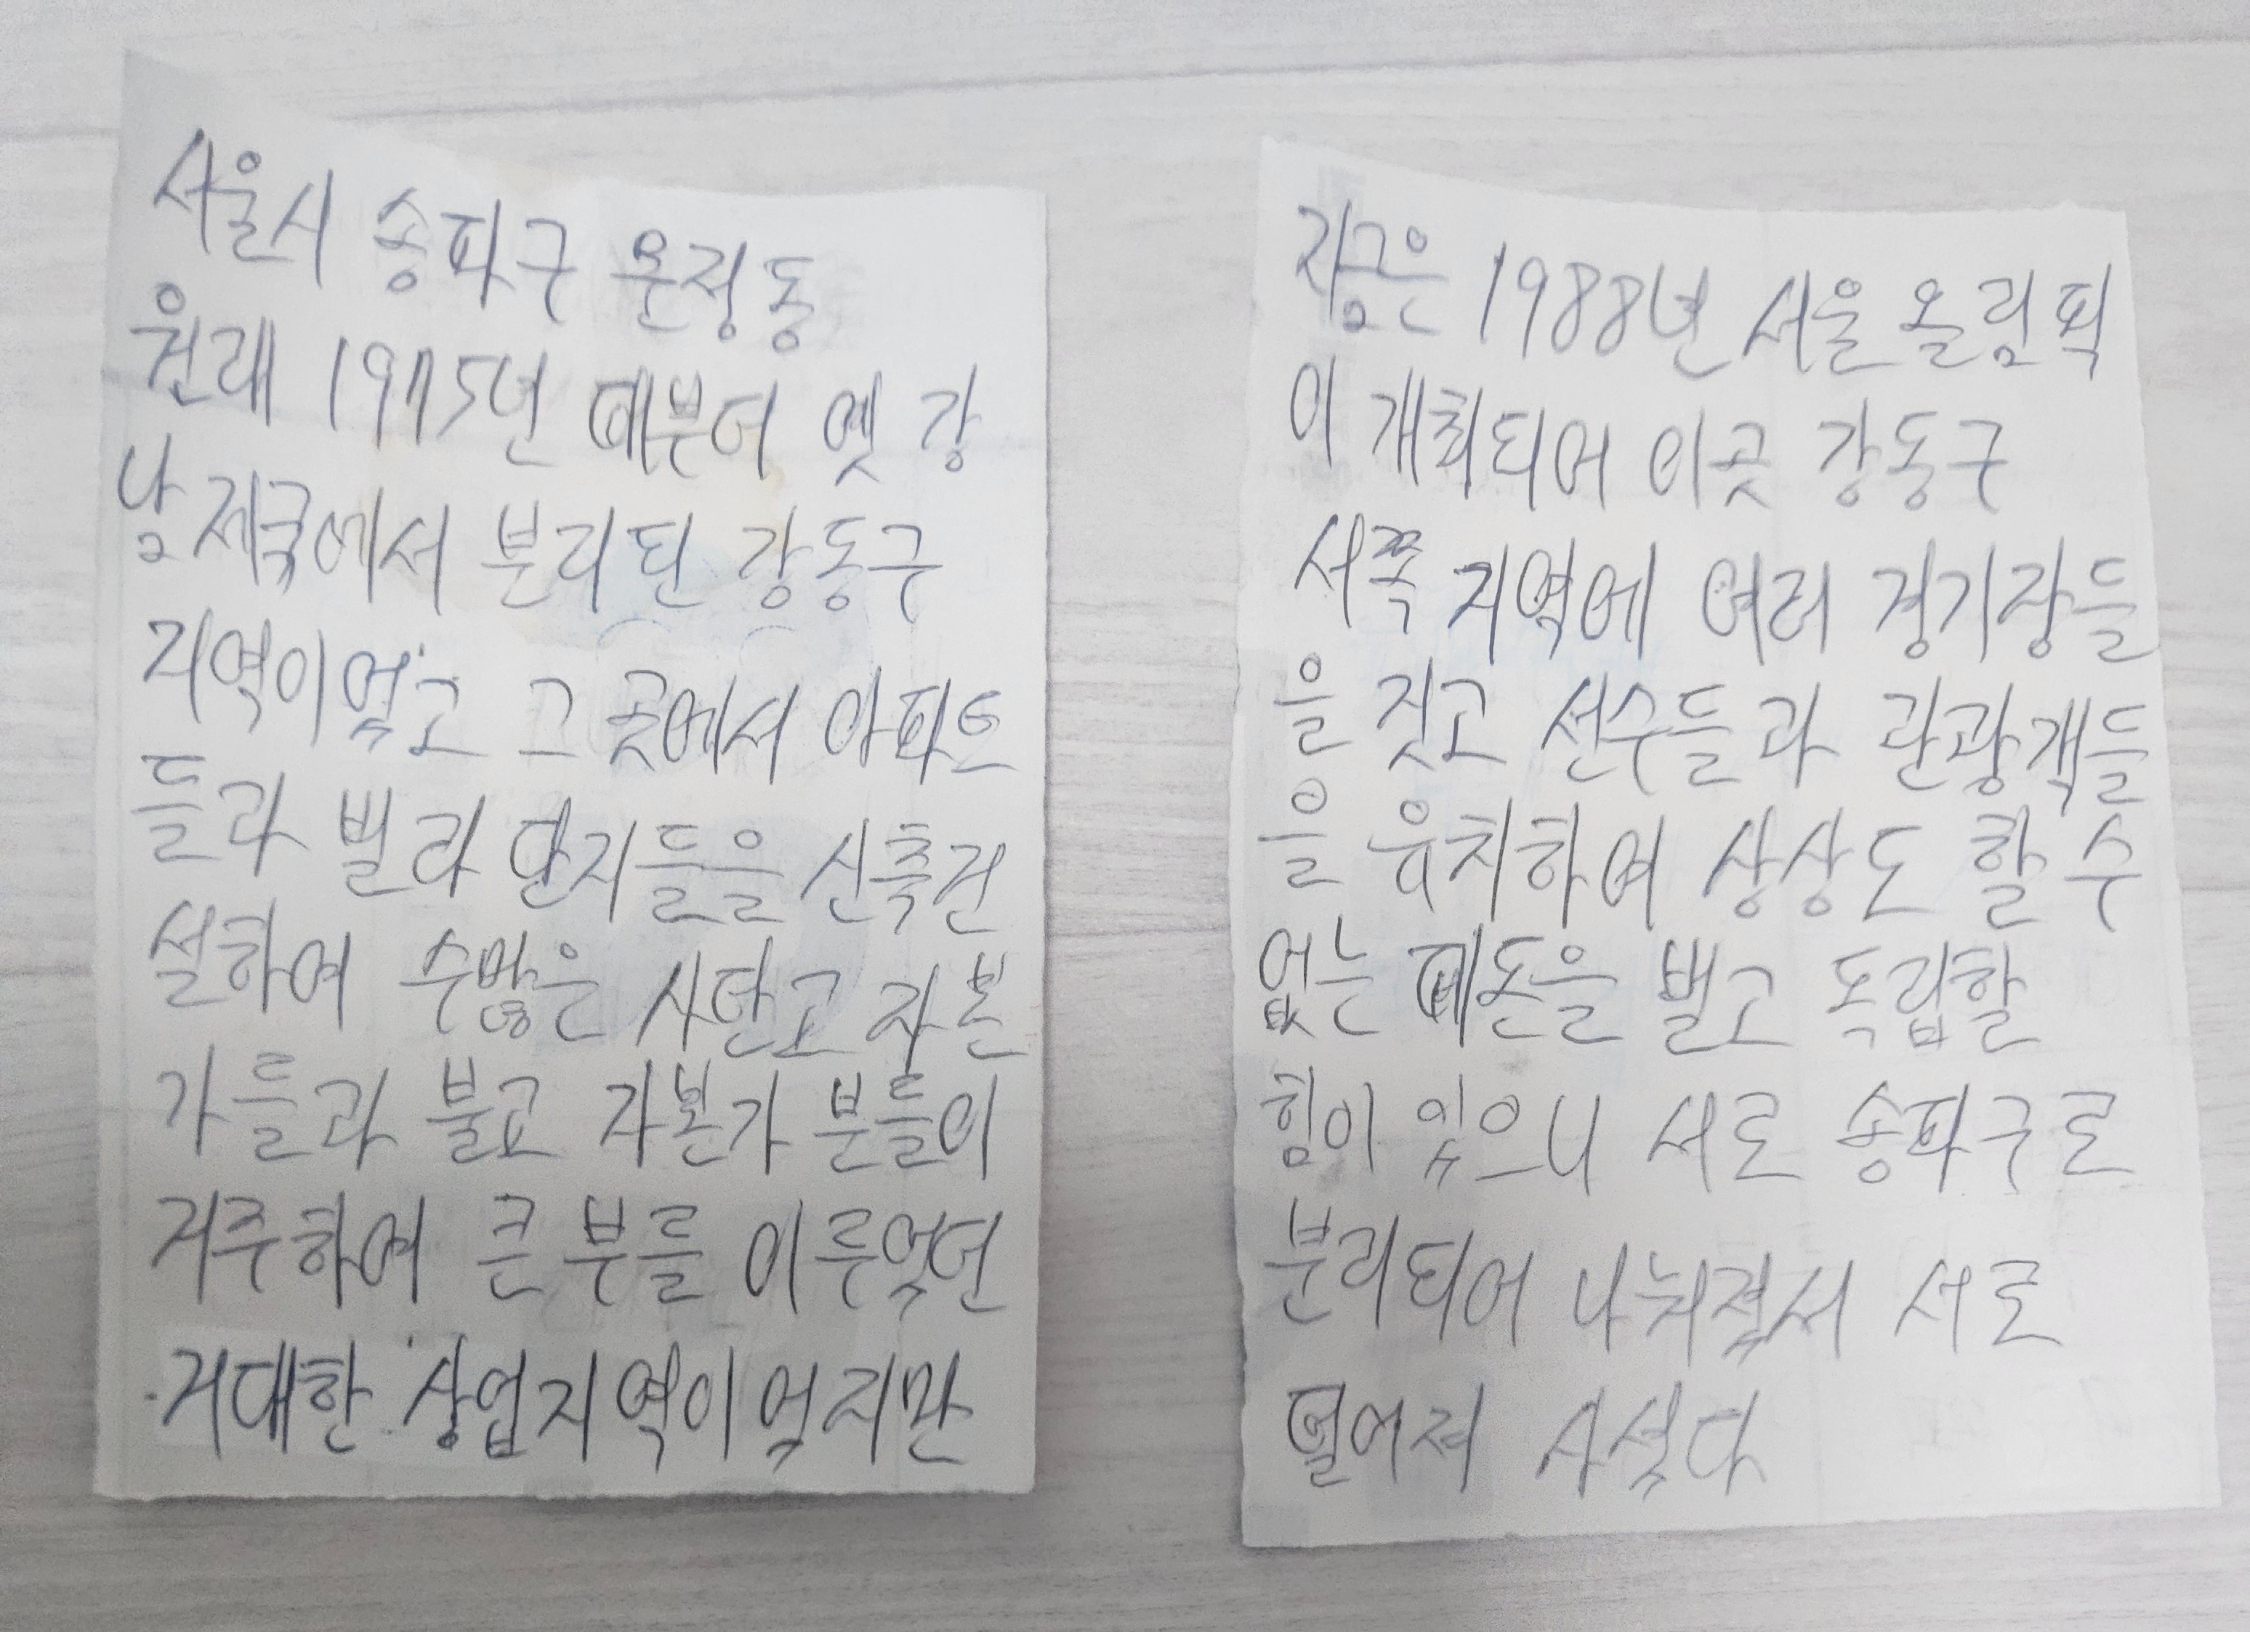 서울시 송파구 문정동
원래 1975년 때부터 옛 강
남 제국에서 분리된 강동구
지역이었고 그 곳에서 아파트
들과 빌라 단지들을 신축건
설하여 수많은 사탄고 자본
가들과 불교 자본가 분들이
거주하여 큰 부를 이루었던
거대한 상업지역이었지만
지금은 1988년 서울 올림픽
이 개최되어 이곳 강동구
서쪽 지역에 여러 경기장들
을 짓고 선수들과 관광객들
을 유치하여 상상도 할 수
없는 떼돈을 벌고 독립할
힘이 있으니 서로 송파구로
분리되어 나눠졌서 서로
떨어져 사셨다